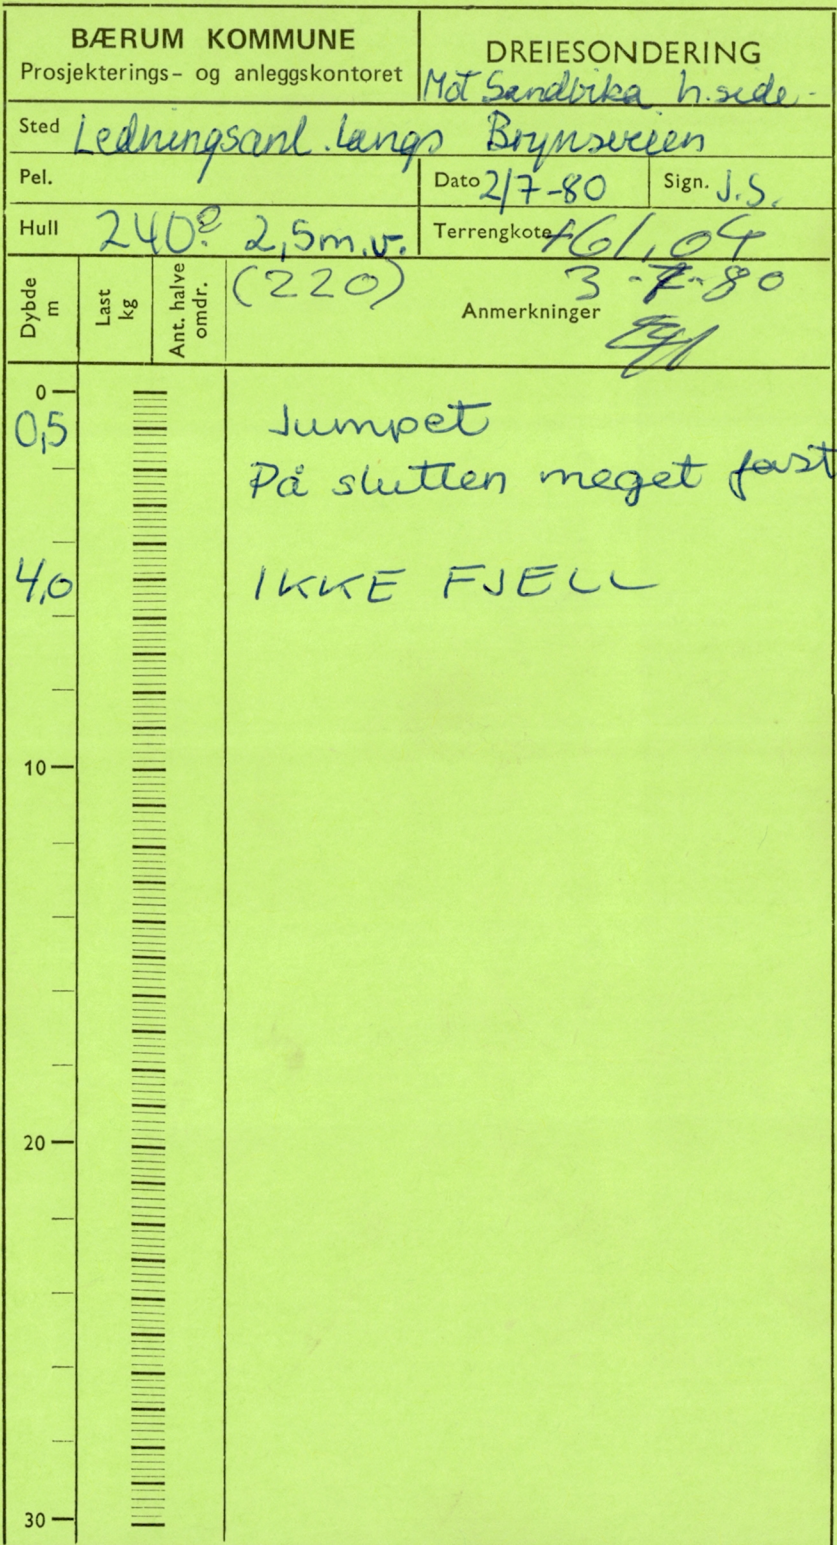 BÆRUM KOMMUNE
Prosjekterings- og anleggskontoret
DREIESONDERING
Mot Sandvika h.side.-
Sted Ledningsanl. langs Brynsveien
Pel.
Dato 2/7-80
Sign. J.S.
Hull 240? 2,5m.v.
Terrengkote +61,04
(220)
3-7-80
Dybde m
Last kg
Ant. halve omdr.
Anmerkninger
0
0,5 Jumpet
På slutten meget fast
4,0 IKKE FJELL
10
20
30